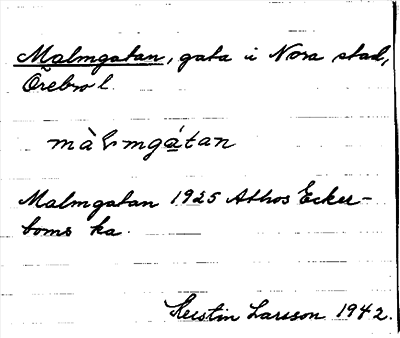 Malmgatan, gata i Nora stad,
Örebro l.
màlmgátan
Malmgatan 1925 Athos Ecker-
boms ka.
Kerstin Larsson 1942.